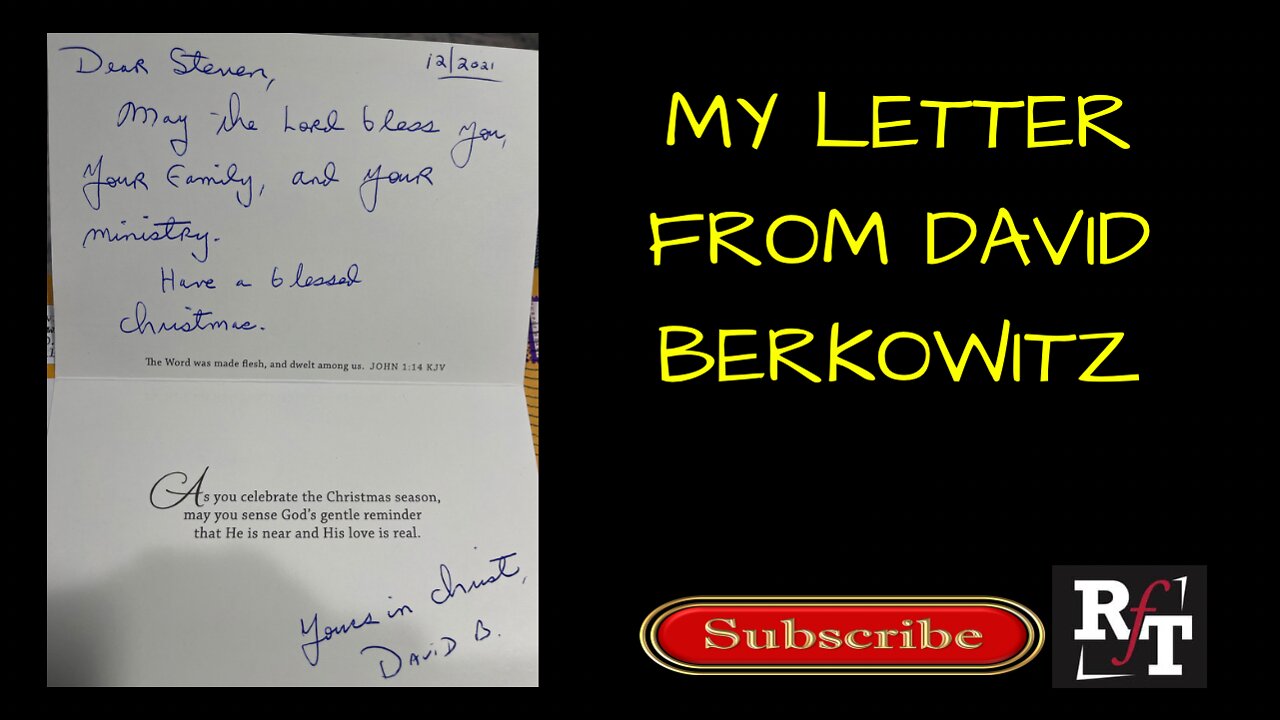 Dear Steven,
12/2021
May the Lord bless you,
Your Family, and your
ministry.
Have a blessed
Christmas.
The Word was made flesh, and dwelt among us. JOHN 1:14 KJV
As you celebrate the Christmas season,
may you sense God's gentle reminder
that He is near and His love is real.
Yours in Christ,
David B.
MY LETTER
FROM DAVID
BERKOWITZ
Subscribe
RfT